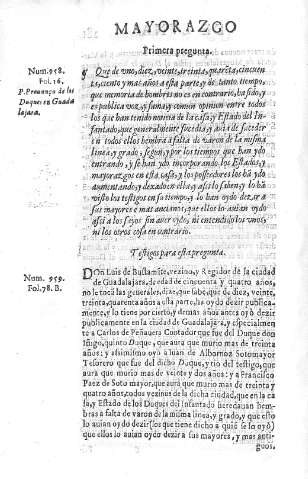 MAYORAZGO
Primera pregunta.
Num.958.
Fol.16.
P. Prouança de los
Duques en Guada
lajara.
Que de vno, diez, veinte, treinta, quarẽta, cincuen
ta, ciento y mas años a esta parte, y de tanto tiempo,
que memoria de hombres no es en contrario, ha sido, y
es publica voz, y fama, y comun opinion entre todos
los que han tenido noticia de la casa, y Estado del In-
fantado, que generalmente sucedia, y auia de suceder
en todos ellos hembra a falta de varon de la misma
linea, y grado, segun, y por los tiempos que han ydo
entrando, y se han ydo incorporando los Estados, y
mayorazgos en esta casa, y los possedores los hã ydo
aumentando, y dexado en ella, y assi lo saben, y lo hã
visto los testigos en su tiempo, y lo han oydo dezir a
sus mayores e mas ancianos, que ellos lo auian oydo
assi a los suyos sin auer oydo, ni entendido los vnos,
ni los otros cosa en contrario.
Testigos para esta pregunta.
Num. 959.
Fol.78.B.
DOn Luis de Bustamãte, vezino, y Regidor de la ciudad
de Guadalajara, de edad de cincuenta y quatro años,
no le tocã las generales, dize, que sabe, que de diez, veinte,
treinta, quarenta años a esta parte, ha oydo dezir publicamen-
te, y lo tiene por cierto, y demas años antes oyò dezir
publicamente en la ciudad de Guadalajara, y especialmen-
te a Carlos de Peñauera Contador que fue del Duque don
Iñigo, quinto Duque, que aura que murio mas de treinta
años; y assimismo oyò a Iuan de Albornoz Sotomayor
Tesorero que fue del dicho Duque, y tio del testigo, que
aura que murio mas de veinte y dos años; y a Francisco
Paez de Soto mayor, que aurà que murio mas de treinta y
quatro años, todos vezinos de la dicha ciudad, que en la ca
sa, y Estado de los Duques del Infantado heredauan hem-
bras a falta de varon de la misma linea, y grado, y que esto
lo auian oydo dezir (los que tiene dicho a quiẽ se lo oyò)
que ellos lo auian oydo dezir a sus mayores, y mas anti-
guos,